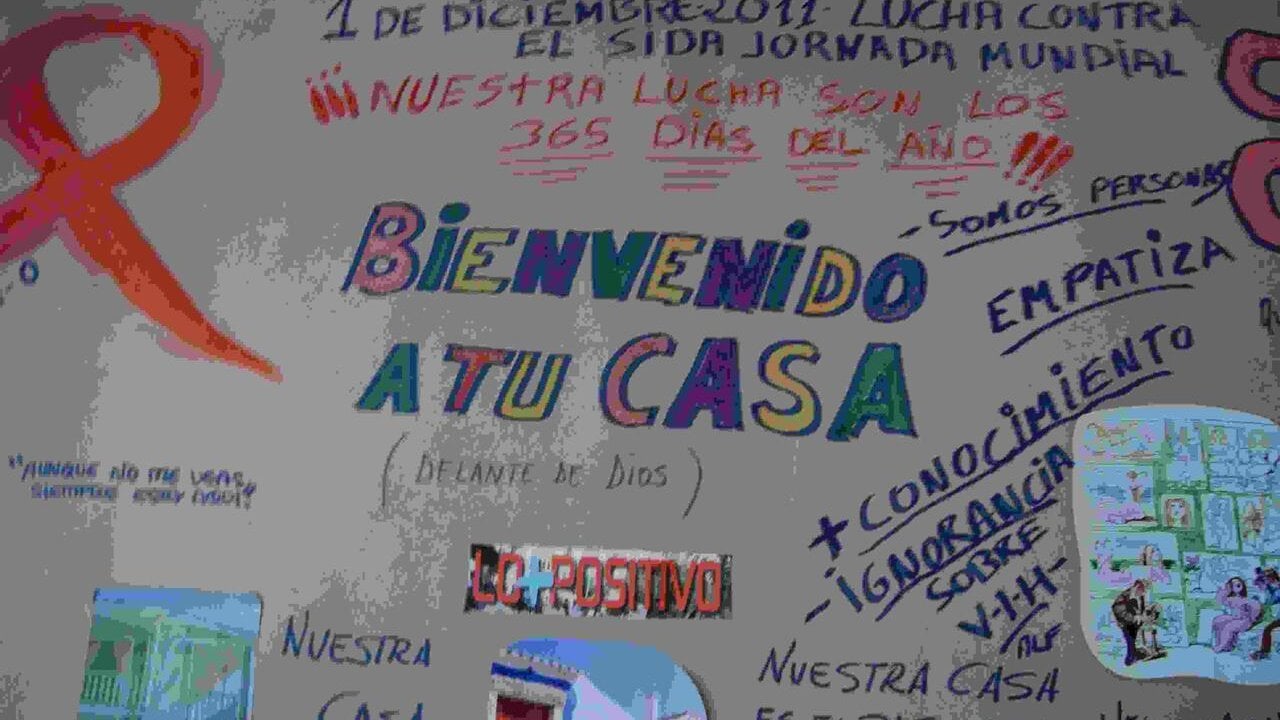 1 DE DICIEMBRE-2011- LUCHA CONTRA
EL SIDA JORNADA MUNDIAL
¡¡¡NUESTRA LUCHA SON LOS
365 DÍAS DEL AÑO!!!
-SOMOS PERSONAS
EMPATIZA
BIENVENIDO
A TU CASA
(DELANTE DE DIOS)
+ CONOCIMIENTO
- IGNORANCIA
SOBRE
V-I-H-
"AUNQUE NO ME VEAS,
SIEMPRE ESTOY AQUÍ"
LO+POSITIVO
NUESTRA
CASA
NUESTRA CASA